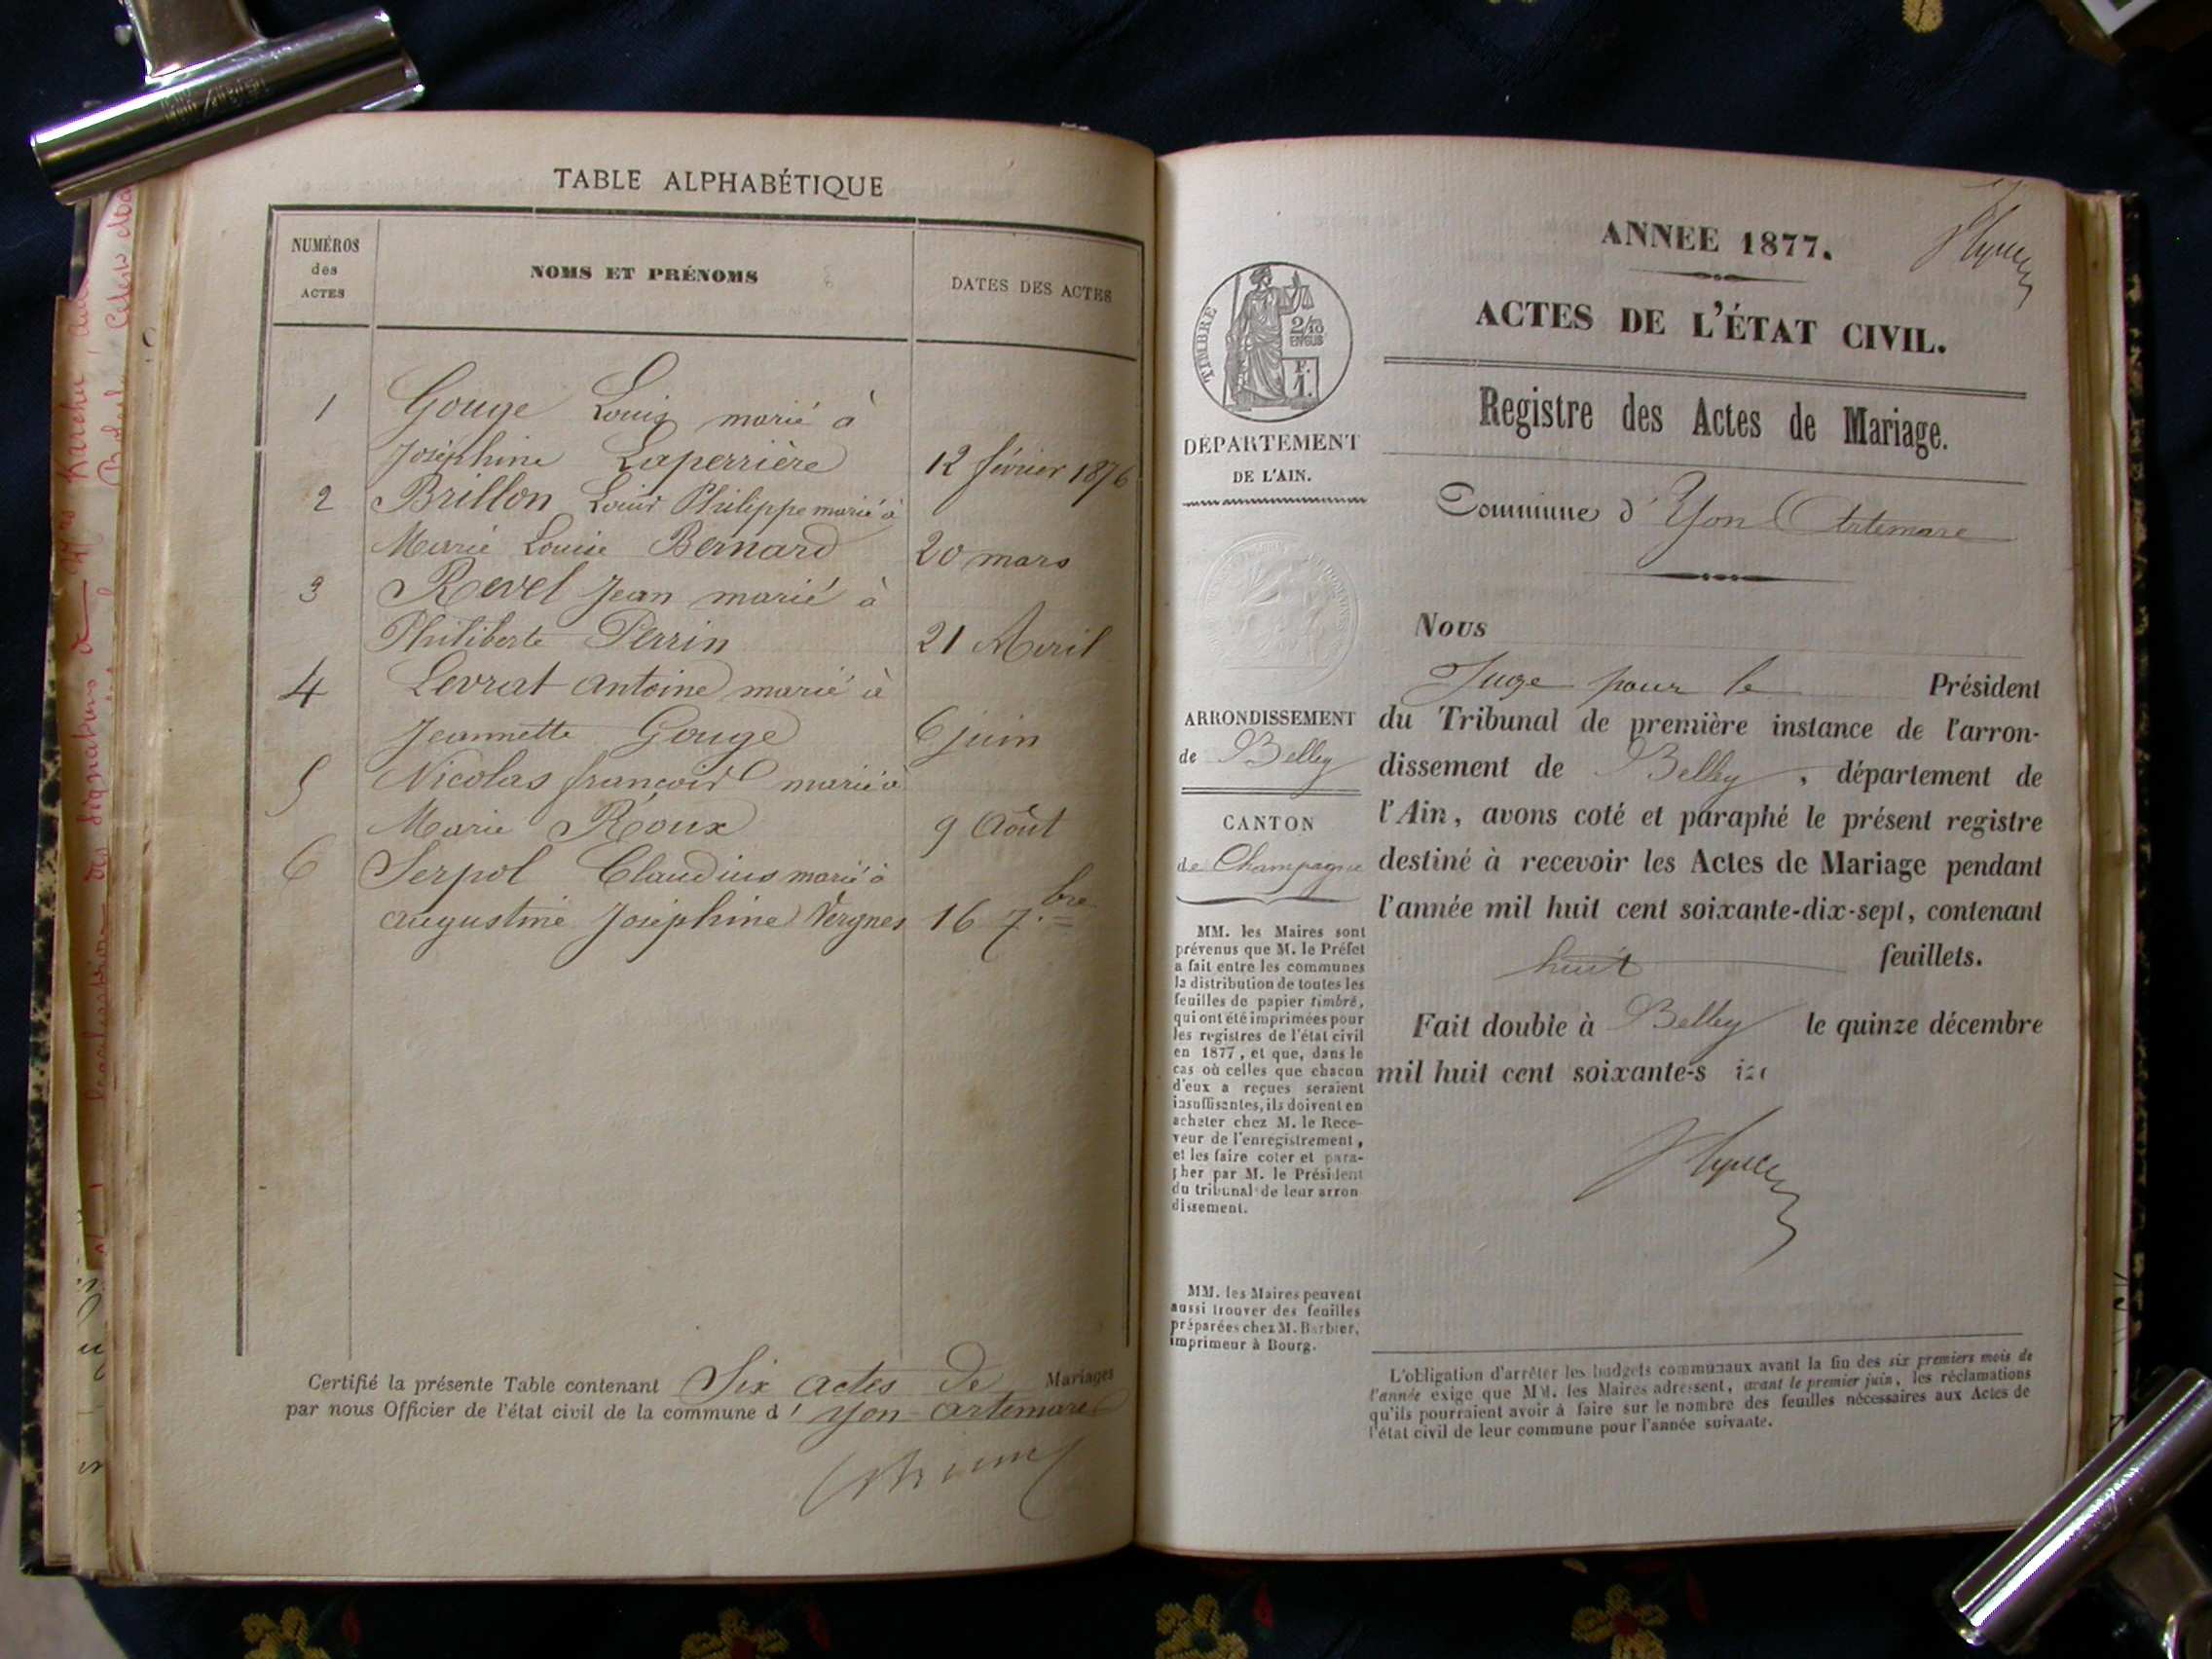 TABLE ALPHABÉTIQUE
NUMÉROS
des
ACTES
NOMS ET PRÉNOMS
DATES DES ACTES
1 Gouge Louis marié à
Joséphine Laperrière 12 février 1876
2 Brillon Louis Philippe marié à
Marie Louise Bernard 20 mars
3 Revel Jean marié à
Philiberte Perrin 21 Avril
4 Levrat Antoine marié à
Jeannette Gouge 6 juin
5 Nicolas françois marié à
Marie Roux 9 Août
6 Serpol Claudius marié à
augustine Joséphine Vergnes 16 7.bre
Certifié la présente Table contenant Six actes de Mariages
par nous Officier de l'état civil de la commune d' yon-artemare
ANNEE 1877.
ACTES DE L'ÉTAT CIVIL.
Registre des Actes de Mariage.
Commune d'Yon Artemare
TIMBRE
2/10
EN SUS
F.
1.
DÉPARTEMENT
DE L'AIN.
ARRONDISSEMENT
de Belley
CANTON
de Champagne
MM. les Maires sont
prévenus que M. le Préfet
a fait entre les communes
la distribution de toutes les
feuilles de papier timbré,
qui ont été imprimées pour
les registres de l'état civil
en 1877, et que, dans le
cas où celles que chacun
d'eux a reçues seraient
insuffisantes, ils doivent en
acheter chez M. le Rece-
veur de l'enregistrement,
et les faire coter et para-
pher par M. le Président
du tribunal de leur arron
dissement.
MM. les Maires peuvent
aussi trouver des feuilles
préparées chez M. Barbier,
imprimeur à Bourg.
Nous
Juge pour le Président
du Tribunal de première instance de l'arron-
dissement de Belley, département de
l'Ain, avons coté et paraphé le présent registre
destiné à recevoir les Actes de Mariage pendant
l'année mil huit cent soixante-dix-sept, contenant
huit feuillets.
Fait double à Belley le quinze décembre
mil huit cent soixante-s
L'obligation d'arrêter les budgets communaux avant la fin des six premiers mois de
l'année exige que MM. les Maires adressent, avant le premier juin, les réclamations
qu'ils pourraient avoir à faire sur le nombre des feuilles nécessaires aux Actes de
l'état civil de leur commune pour l'année suivante.